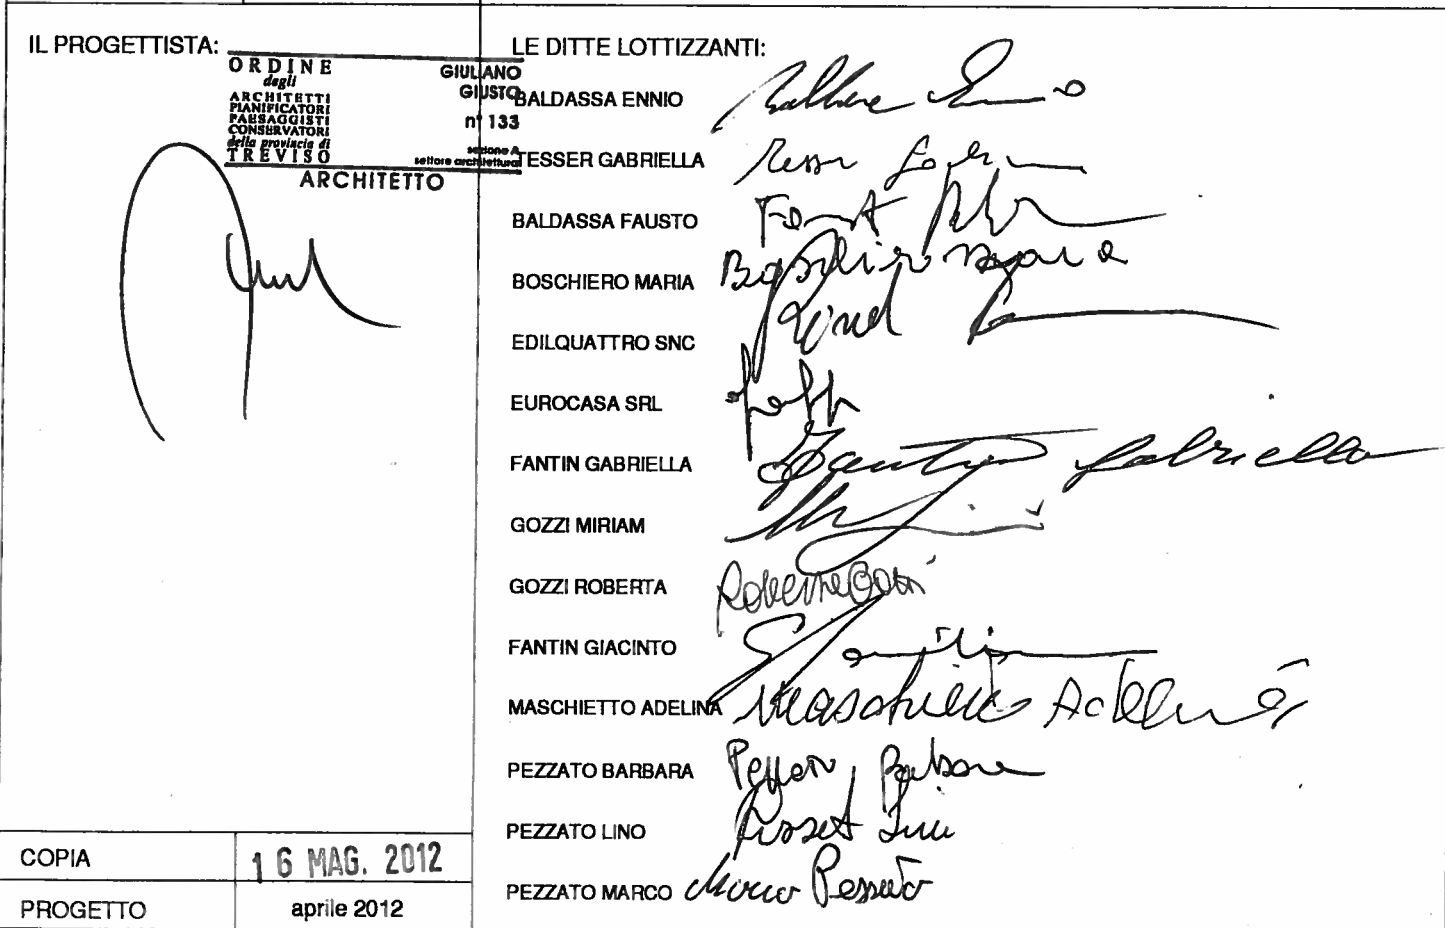 IL PROGETTISTA:
ORDINE
degli
ARCHITETTI
PIANIFICATORI
PAESAGGISTI
CONSERVATORI
della provincia di
TREVISO
GIULIANO
GIUSTO
n° 133
sezione A
settore architettura
ARCHITETTO
LE DITTE LOTTIZZANTI:
BALDASSA ENNIO
TESSER GABRIELLA
BALDASSA FAUSTO
BOSCHIERO MARIA Boschiero Maria
EDILQUATTRO SNC
EUROCASA SRL
FANTIN GABRIELLA Fantin Gabriella
GOZZI MIRIAM
GOZZI ROBERTA Roberta Gozzi
FANTIN GIACINTO
MASCHIETTO ADELINA Maschietto Adelina
PEZZATO BARBARA Pezzato Barbara
PEZZATO LINO
PEZZATO MARCO Marco Pezzato
COPIA 16 MAG. 2012
PROGETTO aprile 2012